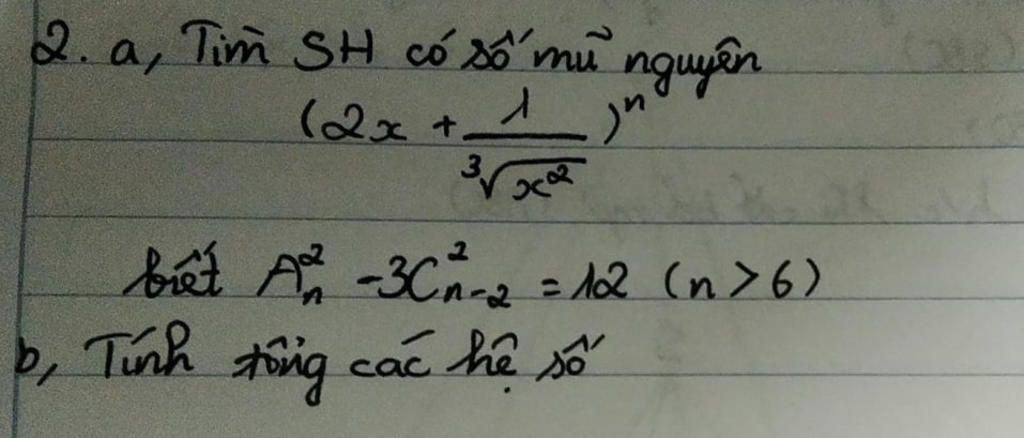 2. a, Tìm SH có số mũ nguyên
(2x + 1/∛x²)ⁿ
biết A²ₙ - 3C²ₙ₋₂ = 12 (n > 6)
b, Tính tổng các hệ số